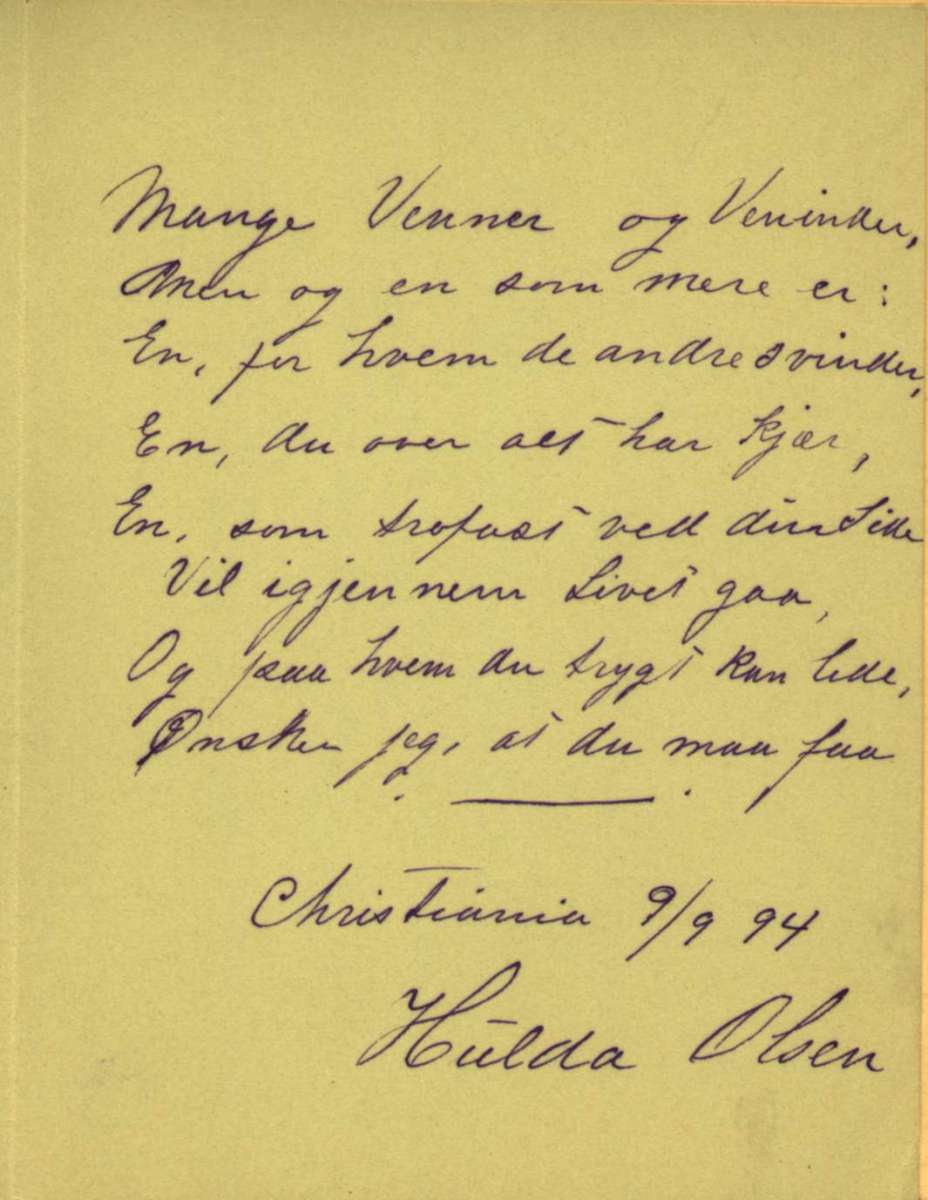 Mange Venner og Veninder,
Men og en som mere er:
En, for hvem de andre svinder,
En, du over alt har kjær,
En, som trofast ved din Side
Vil igjennem Livet gaa,
Og paa hvem du trygt kan lide,
Ønsker jeg, at du maa faa
Christiania 9/9 94
Hulda Olsen